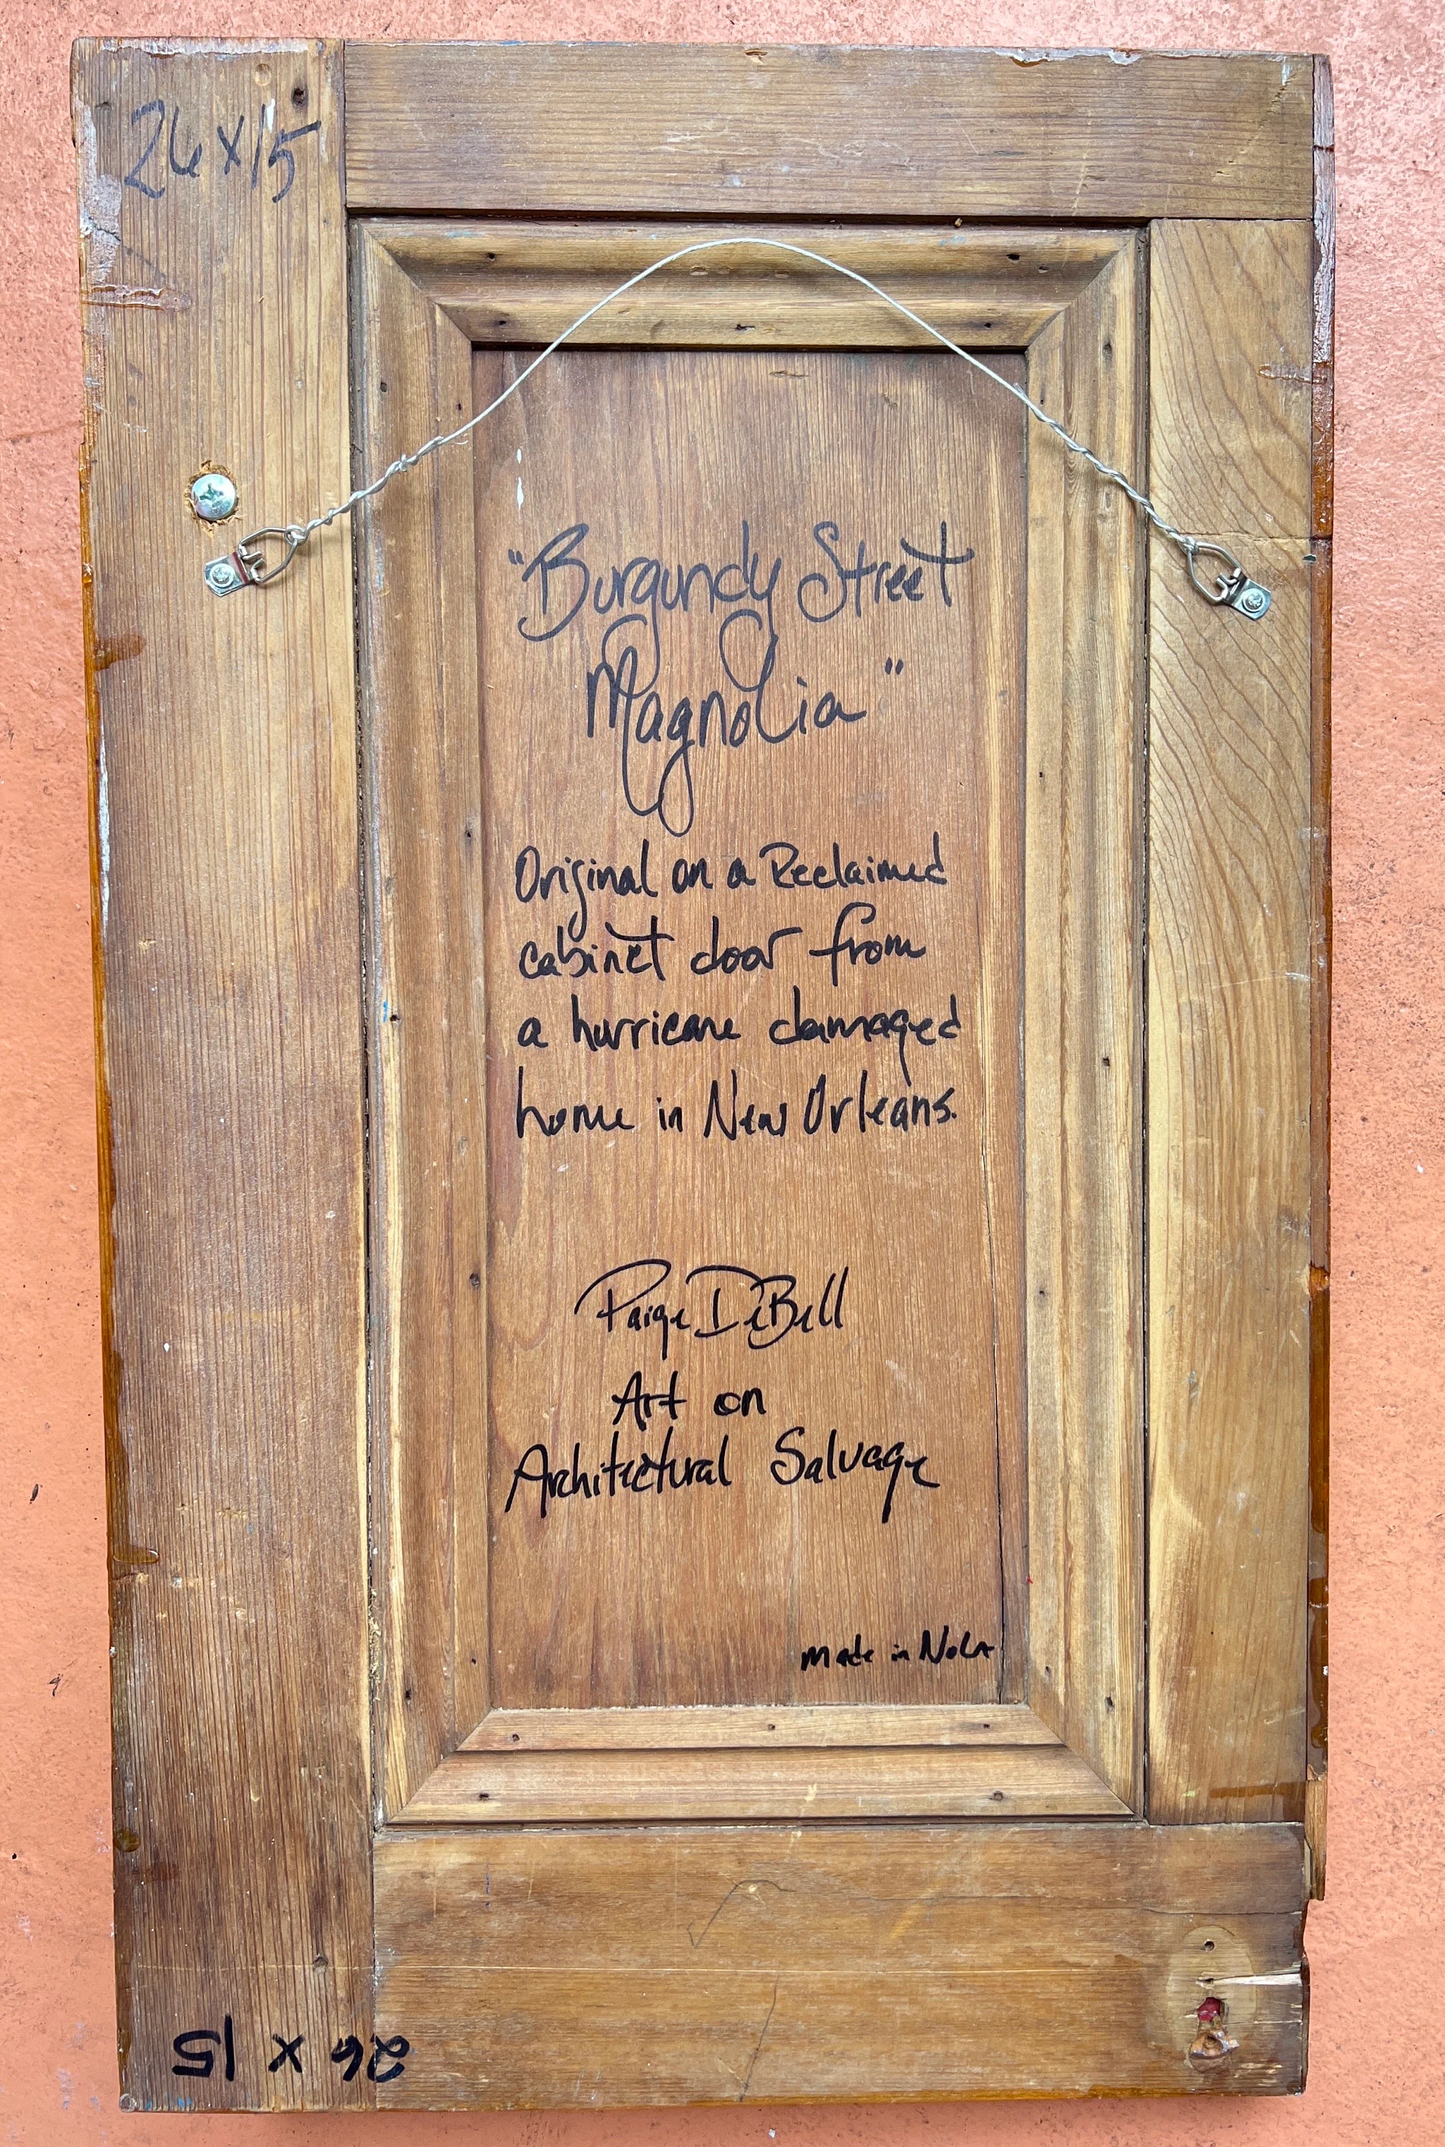 26 x 15
"Burgundy Street
Magnolia"
Original on a Reclaimed
cabinet door from
a hurricane damaged
home in New Orleans.
Paige DeBell
Art on
Architectural Salvage
made in NOLA
26 x 15